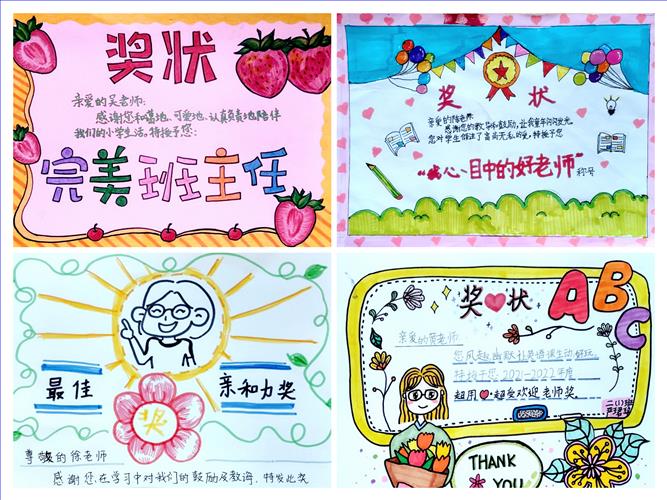 奖状
亲爱的吴老师:
感谢您和蔼地、可爱地、认真负责地陪伴
我们的小学生活,特授予您:
完美班主任
奖 状
亲爱的陆老师
感谢您的教导和鼓励,让我童年闪闪发光。
您对学生倾注了高尚无私的爱,特授予您
心目中的好老师”称号
最佳
亲和力奖
奖
尊敬的徐老师
感谢您在学习中对我们的鼓励及教诲,特发此奖
奖 状
ABC
亲爱的 老师
您风趣幽默让英语课生动好玩。
特授予您2021-2022年度
超用♥·超受欢迎老师奖。
二(1)班
THANK
YOU